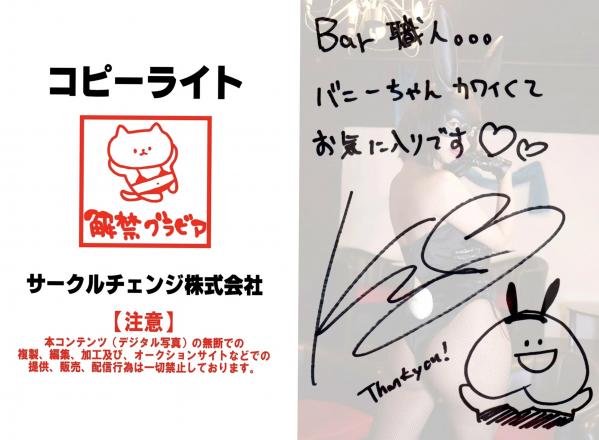 コピーライト
解禁グラビア
サークルチェンジ株式会社
【注意】
本コンテンツ(デジタル写真)の無断での
複製、編集、加工及び、オークションサイトなどでの
提供、販売、配信行為は一切禁止しております。
Bar 職人。。。
バニーちゃん カワイくて
お気に入りです♡♡
Thank you!